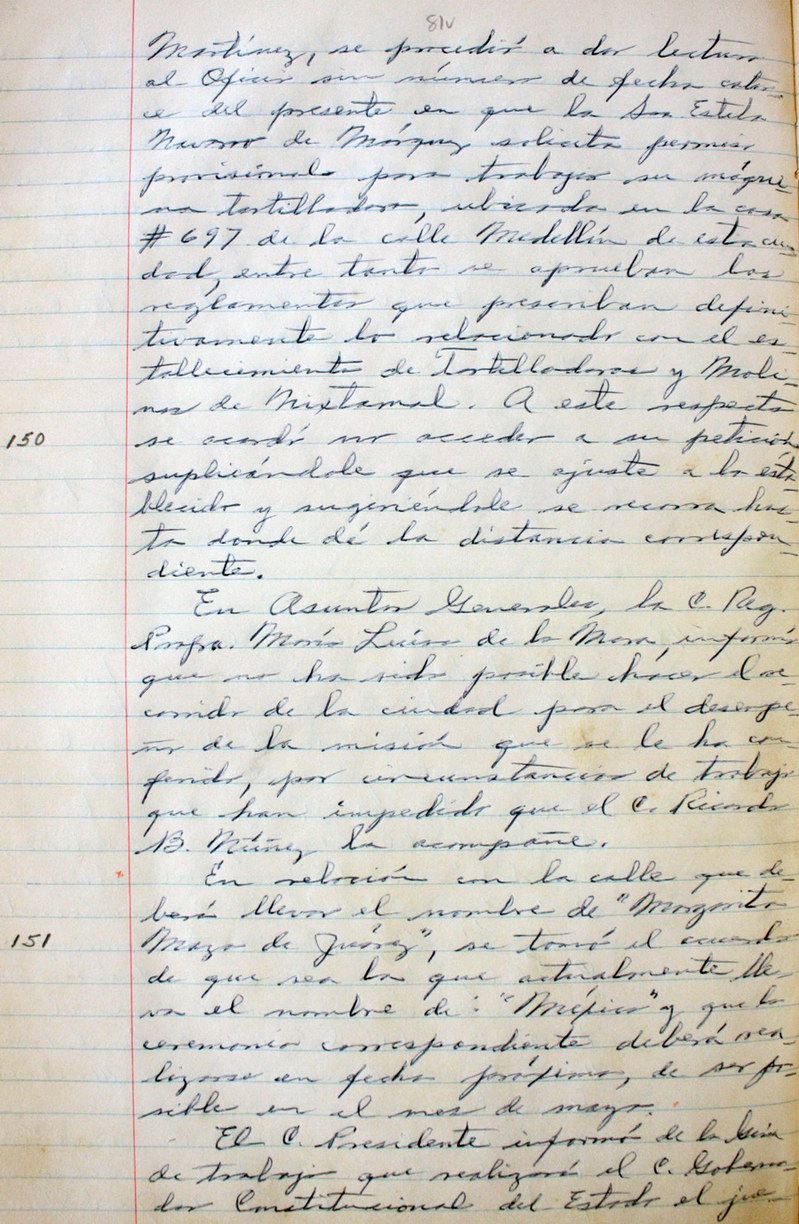 81v
Martínez, se procedió a dar lectura
al Oficio sin número de fecha cator-
ce del presente en que la Sra Estela
Navarro de Márquez solicita permiso
provisional para trabajar su máqui-
na tortilladora, ubicada en la casa
# 697 de la calle Medellín de esta ciu-
dad, entre tanto se aprueban los
reglamentos que prescriban defini-
tivamente lo relacionado con el es-
tablecimiento de Tortilladoras y Moli-
nos de Nixtamal. A este respecto
150 se acordó no acceder a su petición
suplicándole que se ajuste a lo esta-
blecido y sugiriéndole se recorra has-
ta donde dé la distancia correspon-
diente.
En Asuntos Generales, la C. Reg.
Profra. María Luisa de la Mora, informó
que no ha sido posible hacer el re-
corrido de la ciudad para el desempe-
ño de la misión que se le ha con-
ferido, por circunstancias de trabajo
que han impedido que el C. Ricardo
B. Núñez la acompañe.
En relación con la calle que de-
berá llevar el nombre de "Margarita
151 Maza de Juárez", se tomó el acuerdo
de que sea la que actualmente lle-
va el nombre de: "México" y que la
ceremonia correspondiente deberá rea-
lizarse en fecha próxima, de ser po-
sible en el mes de mayo.
El C. Presidente informó de la Gira
de trabajo que realizará el C. Goberna-
dor Constitucional del Estado el jue-